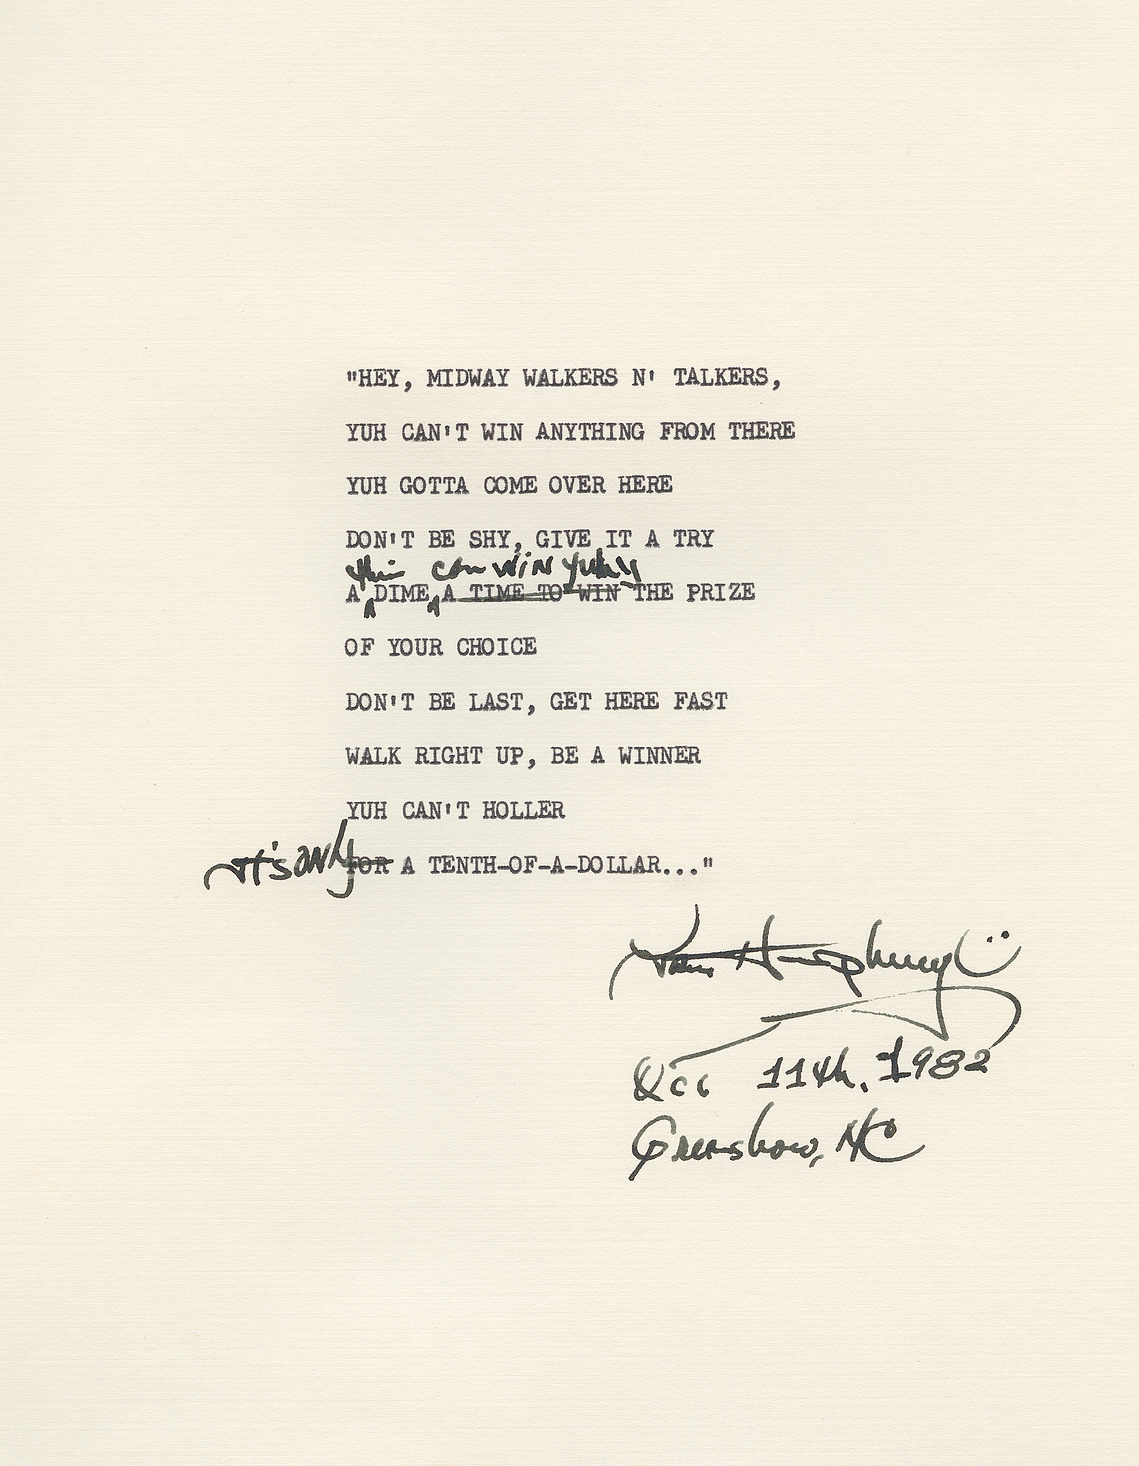 "HEY, MIDWAY WALKERS N' TALKERS,
YUH CAN'T WIN ANYTHING FROM THERE
YUH GOTTA COME OVER HERE
DON'T BE SHY, GIVE IT A TRY
thin can WIN yuh
A DIME A TIME TO WIN THE PRIZE
OF YOUR CHOICE
DON'T BE LAST, GET HERE FAST
WALK RIGHT UP, BE A WINNER
YUH CAN'T HOLLER
It's ONly FOR A TENTH-OF-A-DOLLAR..."
Humphrey
Oct 11th, 1982
Greensboro, NC